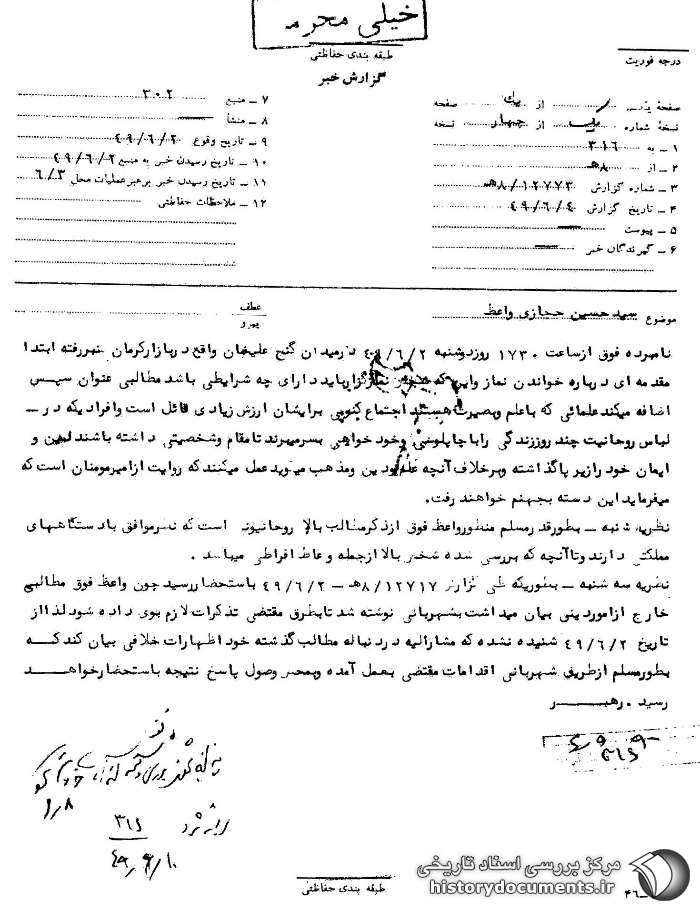 خیلی محرمانه
طبقه بندی حفاظتی
گزارش خبر
درجه فوریت
صفحهٔ یک از یک صفحه
نسخهٔ شماره یک از چهار نسخه
۱ ـ به ۳۱۶
۲ ـ از ۸هـ
۳ ـ شماره گزارش ۸/۱۲۷۷۳هـ
۴ ـ تاریخ گزارش ۴۹/۶/۴
۵ ـ پیوست
۶ ـ گیرندگان خبر
۷ ـ منبع ۳۰۲
۸ ـ منشأ
۹ ـ تاریخ وقوع ۴۹/۶/۲
۱۰ ـ تاریخ رسیدن خبر به منبع ۴۹/۶/۲
۱۱ ـ تاریخ رسیدن خبر برهبر عملیات محل ۶/۳
۱۲ ـ ملاحظات حفاظتی
موضوع سید حسین حجازی واعظ
عطف
پیرو
نامبرده فوق از ساعت ۱۷۳۰ روز دوشنبه ۴۹/۶/۲ در میدان گنج علیخان واقع در بازار کرمان منبر رفته ابتدا
مقدمه ای درباره خواندن نماز و این که نماز گزار باید دارای چه شرایطی باشد مطالبی عنوان سپس
اضافه میکند علمائی که با علم و بصیرت هستند اجتماع کنونی برایشان ارزش زیادی قائل است و افرادیکه در ـ
لباس روحانیت چند روز زندگی را با چاپلوسی و خود خواهی بسر میبرند تا مقام و شخصیتی داشته باشند لهین و
ایمان خود را زیر پا گذاشته و بر خلاف آنچه علم و دین و مذهب میگوید عمل میکنند که روایت از امیر مومنان است که
میفرماید این دسته بجهنم خواهند رفت.
نظریه شنبه ـ بطور قدر مسلم منظور واعظ فوق از ذکر مطالب بالا روحانیونی است که نظر موافق با دستگاههای
مملکتی دارند و تا آنچه که بررسی شده شخص بالا از جمله وعاظ افراطی میباشد .
نظریه سه شنبه ـ بطوریکه طی گزارش ۸/۱۲۷۱۷هـ ـ ۴۹/۶/۲ باستحضار رسید چون واعظ فوق مطالبی
خارج از امور دینی بیان میداشت بشهربانی نوشته شد تا بطرق مقتضی تذکرات لازم بوی داده شود لذا از
تاریخ ۴۹/۶/۲ شنیده نشده که مشارالیه در دنباله مطالب گذشته خود اظهارات خلافی بیان کند کــه
بطور مسلم از طریق شهربانی اقدامات مقتضی بعمل آمده و بمحض وصول پاسخ نتیجه باستحضار خواهــد
رسید . رهبــــر
۳۱۶
۴۹/۶/۱۰
طبقه بندی حفاظتی
مرکز بررسی اسناد تاریخی
historydocuments.ir